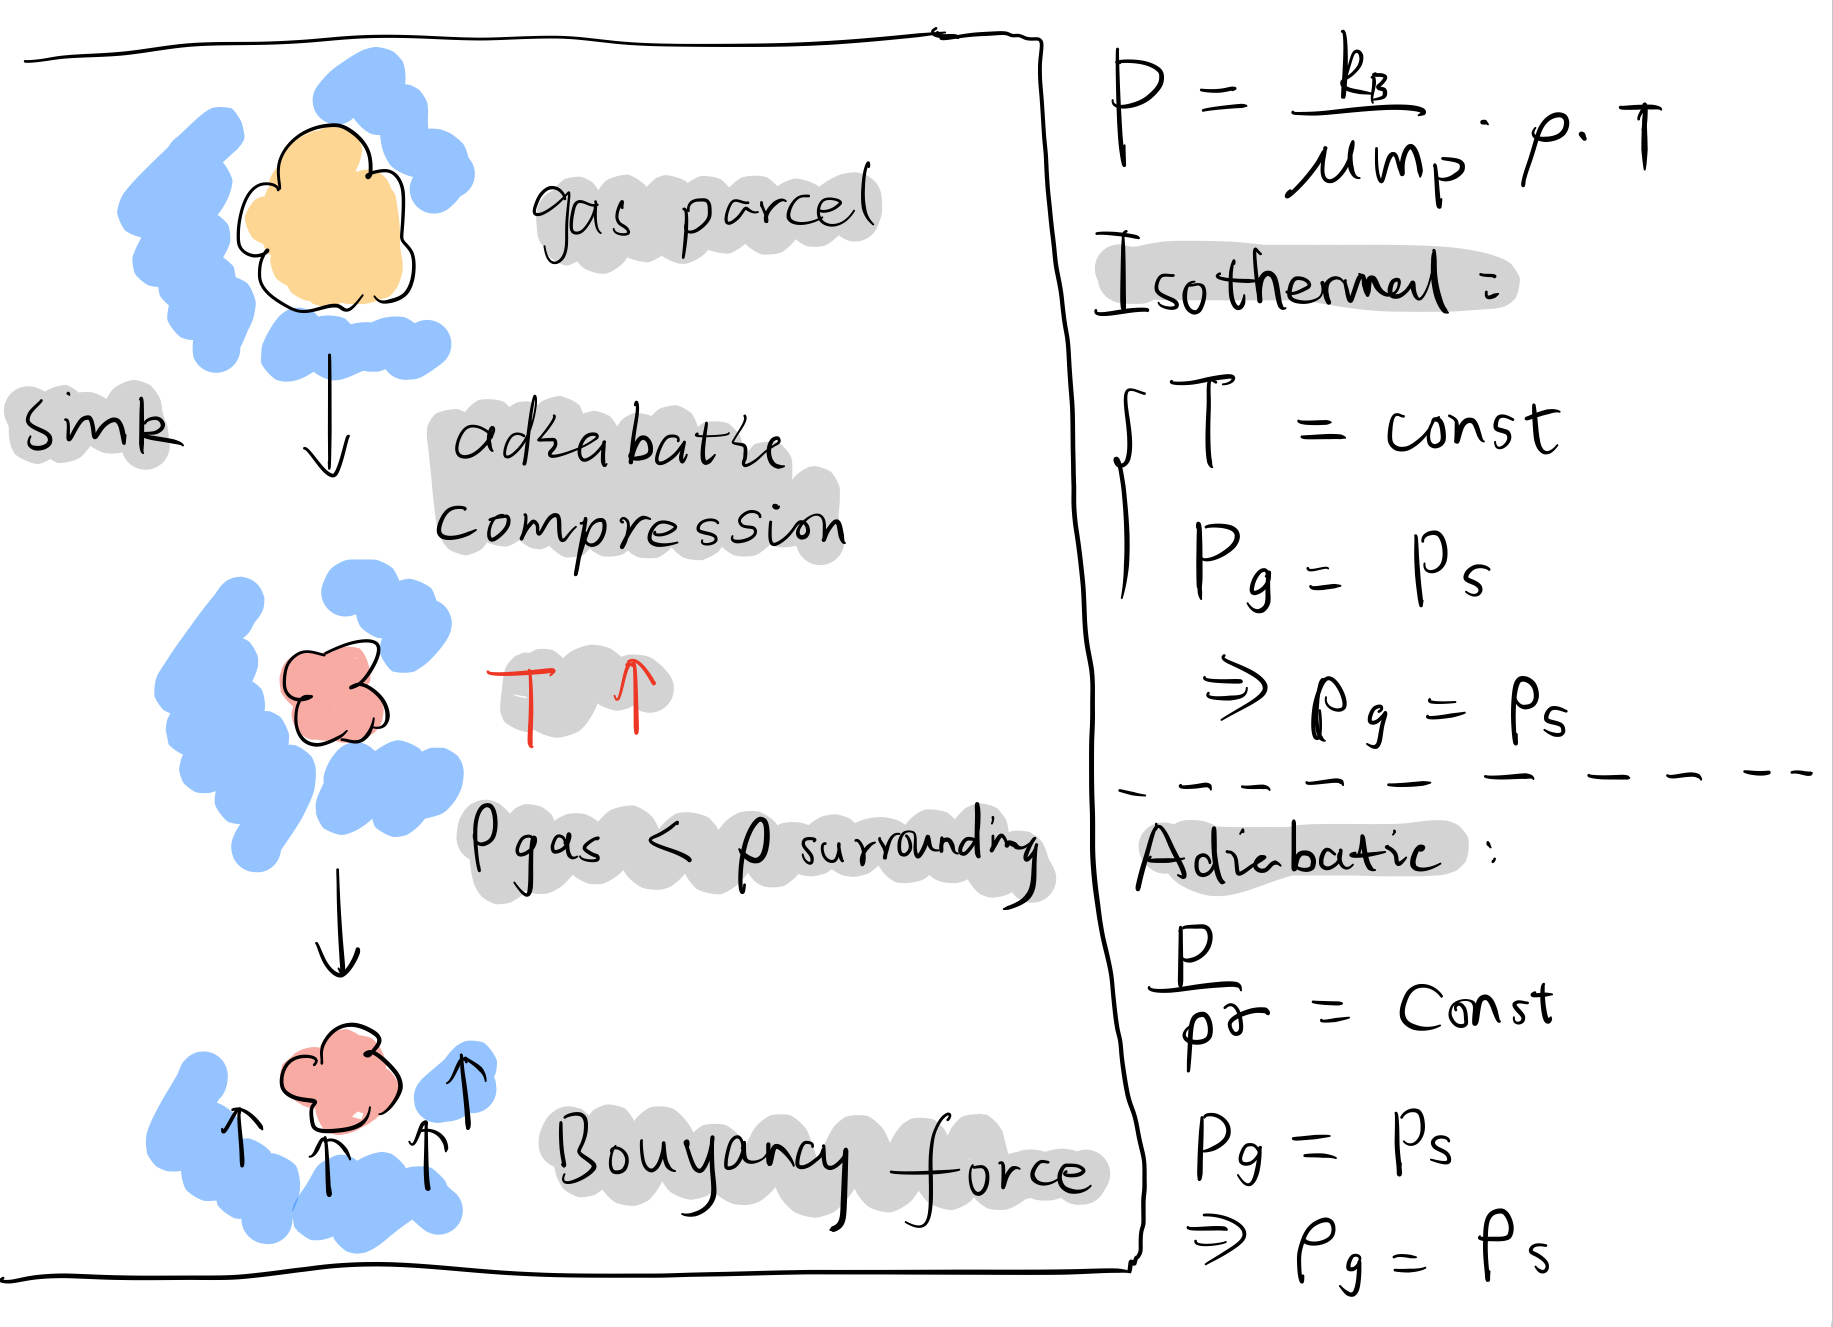 gas parcel
sink
adiabatic
compression
T ↑
ρgas < ρ surrounding
Bouyancy force
P = k_B / μm_p · ρ · T
Isothermal :
{ T = const
P_g = P_s
⇒ ρ_g = ρ_s
Adiabatic :
P / ρ^γ = Const
P_g = P_s
⇒ ρ_g = ρ_s